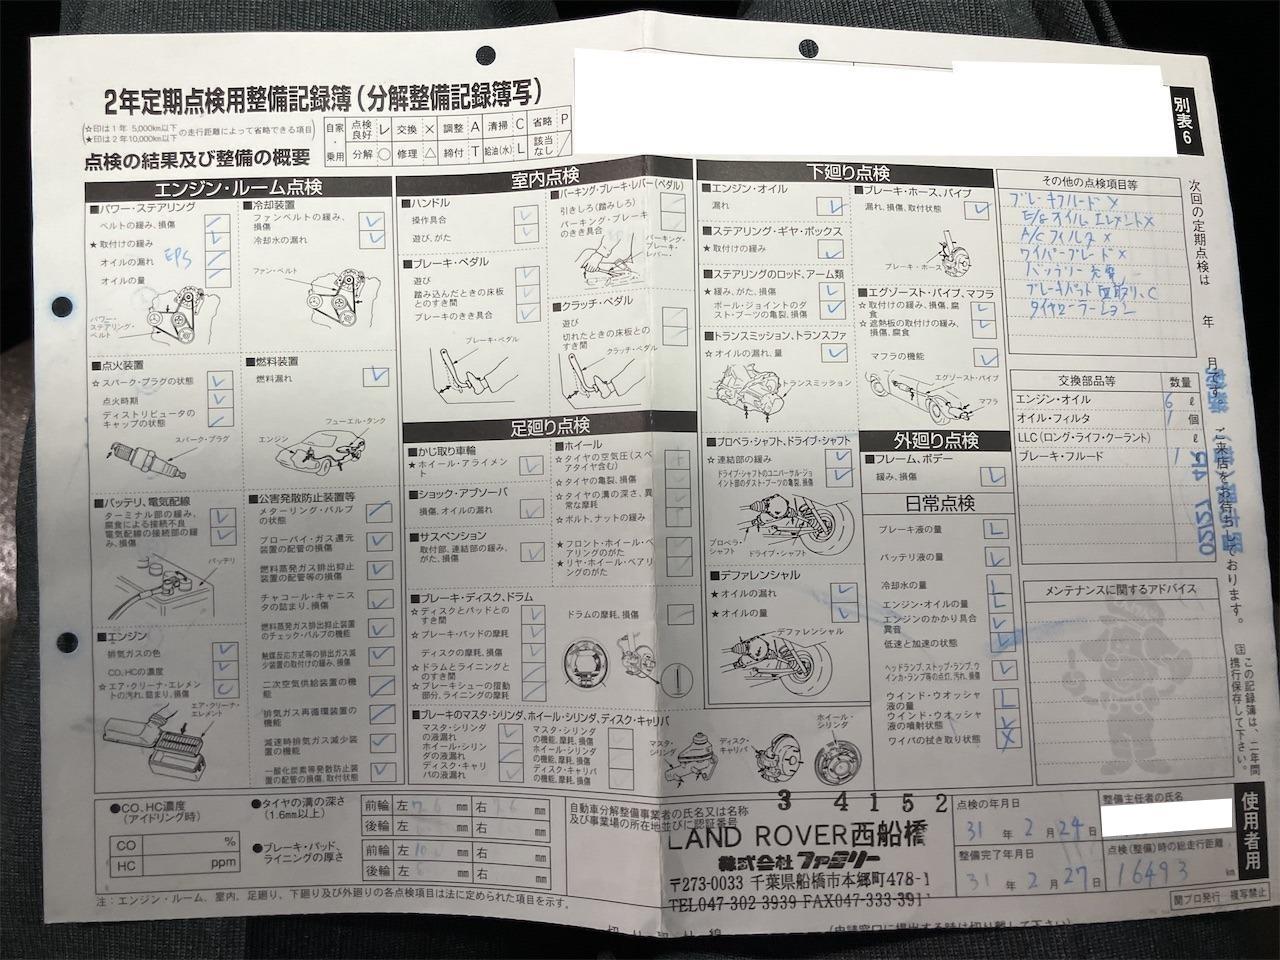 2年定期点検用整備記録簿(分解整備記録簿写)
☆印は1年 5,000km以下
★印は2年10,000km以下
の走行距離によって省略できる項目
自家・乗用
点検良好 レ 交換 × 調整 A 清掃 C 省略 P
分解 ○ 修理 △ 締付 T 給油(水) L 該当なし /
別表6
点検の結果及び整備の概要
エンジン・ルーム点検
■パワー・ステアリング
ベルトの緩み、損傷
★取付けの緩み
オイルの漏れ
オイルの量
EPS
パワー・ステアリング・ベルト
■冷却装置
ファンベルトの緩み、損傷
冷却水の漏れ
ファン・ベルト
■点火装置
☆スパーク・プラグの状態
点火時期
ディストリビュータのキャップの状態
スパーク・プラグ
■燃料装置
燃料漏れ
フューエル・タンク
エンジン
■バッテリ、電気配線
ターミナル部の緩み、腐食による接続不良
電気配線の接続部の緩み、損傷
バッテリ
■公害発散防止装置等
メターリング・バルブの状態
ブローバイ・ガス還元装置の配管の損傷
燃料蒸発ガス排出抑止装置の配管等の損傷
チャコール・キャニスタの詰まり、損傷
燃料蒸発ガス排出抑止装置のチェック・バルブの機能
触媒反応方式等の排出ガス減少装置の取付けの緩み、損傷
二次空気供給装置の機能
排気ガス再循環装置の機能
減速時排気ガス減少装置の機能
一酸化炭素等発散防止装置の配管の損傷、取付状態
■エンジン
排気ガスの色
CO、HCの濃度
☆エア・クリーナ・エレメントの汚れ、詰まり、損傷
エア・クリーナ・エレメント
室内点検
■ハンドル
操作具合
遊び、がた
■ブレーキ・ペダル
遊び
踏み込んだときの床板とのすき間
ブレーキのきき具合
ブレーキ・ペダル
■パーキング・ブレーキ・レバー(ペダル)
引きしろ(踏みしろ)
パーキング・ブレーキのきき具合
パーキング・ブレーキ・レバー
■クラッチ・ペダル
遊び
切れたときの床板とのすき間
クラッチ・ペダル
足廻り点検
■かじ取り車輪
★ホイール・アライメント
■ショック・アブソーバ
損傷、オイルの漏れ
■サスペンション
取付部、連結部の緩み、がた、損傷
■ホイール
☆タイヤの空気圧(スペアタイヤ含む)
☆タイヤの亀裂、損傷
☆タイヤの溝の深さ、異常な摩耗
☆ボルト、ナットの緩み
★フロント・ホイール・ベアリングのがた
★リヤ・ホイール・ベアリングのがた
■ブレーキ・ディスク、ドラム
☆ディスクとパッドとのすき間
☆ブレーキ・パッドの摩耗
ディスクの摩耗、損傷
☆ドラムとライニングとのすき間
☆ブレーキシューの摺動部分、ライニングの摩耗
ドラムの摩耗、損傷
■ブレーキのマスタ・シリンダ、ホイール・シリンダ、ディスク・キャリパ
マスタ・シリンダの液漏れ
ホイール・シリンダの液漏れ
ディスク・キャリパの液漏れ
マスタ・シリンダの機能、摩耗、損傷
ホイール・シリンダの機能、摩耗、損傷
ディスク・キャリパの機能、摩耗、損傷
マスタ・シリンダ
ディスク・キャリパ
ホイール・シリンダ
下廻り点検
■エンジン・オイル
漏れ
■ステアリング・ギヤ・ボックス
★取付けの緩み
■ステアリングのロッド、アーム類
★緩み、がた、損傷
ボール・ジョイントのダスト・ブーツの亀裂、損傷
■トランスミッション、トランスファ
☆オイルの漏れ、量
トランスミッション
■プロペラ・シャフト、ドライブ・シャフト
☆連結部の緩み
ドライブ・シャフトのユニバーサル・ジョイント部のダスト・ブーツの亀裂、損傷
プロペラ・シャフト
ドライブ・シャフト
■デファレンシャル
★オイルの漏れ
★オイルの量
デファレンシャル
■ブレーキ・ホース、パイプ
漏れ、損傷、取付状態
ブレーキ・ホース
■エグゾースト・パイプ、マフラ
☆取付けの緩み、損傷、腐食
☆遮熱板の取付けの緩み、損傷、腐食
マフラの機能
エグゾースト・パイプ
マフラ
外廻り点検
■フレーム、ボデー
緩み、損傷
日常点検
ブレーキ液の量
バッテリ液の量
冷却水の量
エンジン・オイルの量
エンジンのかかり具合異音
低速と加速の状態
ヘッドランプ、ストップ・ランプ、ウインカ・ランプ等の点灯、汚れ、損傷
ウインド・ウオッシャ液の量
ウインド・ウオッシャ液の噴射状態
ワイパの拭き取り状態
その他の点検項目等
ブレーキフルード ×
E/g オイル エレメント ×
A/C フィルタ ×
ワイパーブレード ×
バッテリー 充電
ブレーキパット 面取り、C
タイヤローテーション
交換部品等 数量
エンジン・オイル 6 ℓ
オイル・フィルタ 1 個
LLC(ロング・ライフ・クーラント) ℓ
ブレーキ・フルード 1
メンテナンスに関するアドバイス
次回の定期点検は 年 月です。ご来店をお待ちしております。
注 この記録簿は、二年間携行保存して下さい。
使用者用
●CO、HC濃度(アイドリング時)
CO %
HC ppm
●タイヤの溝の深さ(1.6mm以上)
前輪 左 7.6 mm 右 7.6 mm
後輪 左 mm 右 mm
●ブレーキ・パッド、ライニングの厚さ
前輪 左 10 mm 右 mm
後輪 左 mm 右 mm
注:エンジン・ルーム、室内、足廻り、下廻り及び外廻りの各点検項目は法に定められた項目を示す。
自動車分解整備事業者の氏名又は名称及び事業場の所在地並びに認証番号
3 4152
LAND ROVER西船橋
株式会社ファミリー
〒273-0033 千葉県船橋市本郷町478-1
TEL047-302-3939 FAX047-333-391
点検の年月日
31 年 2 月 24 日
整備完了年月日
31 年 2 月 27 日
整備主任者の氏名
点検(整備)時の総走行距離
16493 km
関プロ発行 複写禁止
切り取り線
(申請窓口に提出する時は切り離して下さい)